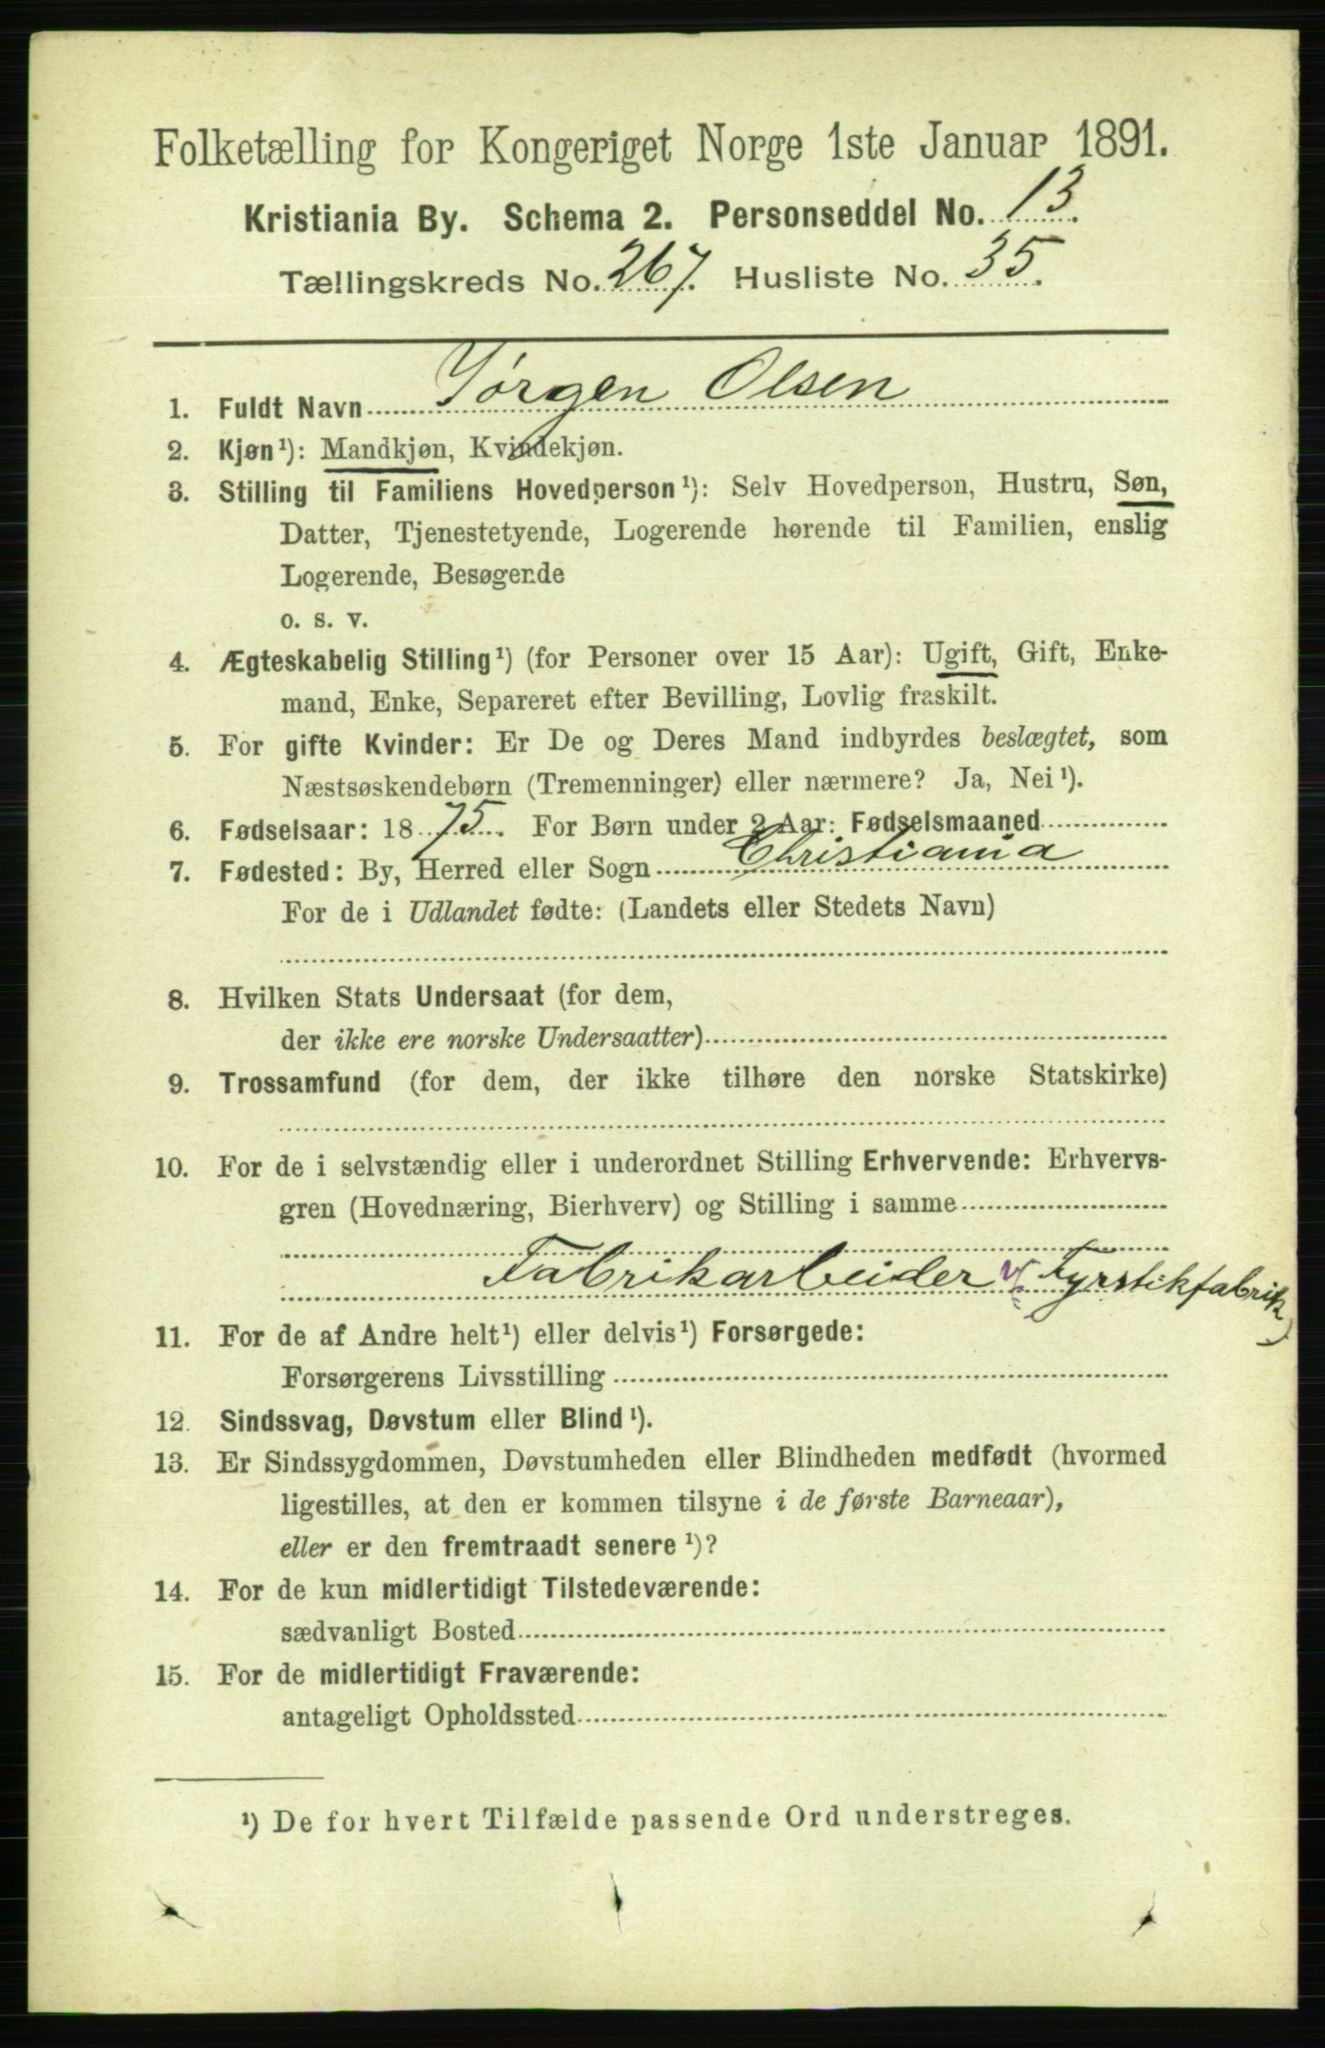 Folketælling for Kongeriget Norge 1ste Januar 1891.
Kristiania By. Schema 2. Personseddel No. 13.
Tællingskreds No. 267. Husliste No. 35.
1. Fuldt Navn Jørgen Olsen
2. Kjøn¹): Mandkjøn, Kvindekjøn.
3. Stilling til Familiens Hovedperson¹): Selv Hovedperson, Hustru, Søn,
Datter, Tjenestetyende, Logerende hørende til Familien, enslig
Logerende, Besøgende
o. s. v.
4. Ægteskabelig Stilling¹) (for Personer over 15 Aar): Ugift, Gift, Enke-
mand, Enke, Separeret efter Bevilling, Lovlig fraskilt.
5. For gifte Kvinder: Er De og Deres Mand indbyrdes beslægtet, som
Næstsøskendebørn (Tremenninger) eller nærmere? Ja, Nei¹).
6. Fødselsaar: 1875. For Børn under 2 Aar: Fødselsmaaned
7. Fødested: By, Herred eller Sogn Christiania
For de i Udlandet fødte: (Landets eller Stedets Navn)
8. Hvilken Stats Undersaat (for dem,
der ikke ere norske Undersaatter)
9. Trossamfund (for dem, der ikke tilhøre den norske Statskirke)
10. For de i selvstændig eller i underordnet Stilling Erhvervende: Erhvervs-
gren (Hovednæring, Bierhverv) og Stilling i samme
Fabrikarbeider v. Fyrstikfabrik
11. For de af Andre helt¹) eller delvis¹) Forsørgede:
Forsørgerens Livsstilling
12. Sindssvag, Døvstum eller Blind¹).
13. Er Sindssygdommen, Døvstumheden eller Blindheden medfødt (hvormed
ligestilles, at den er kommen tilsyne i de første Barneaar),
eller er den fremtraadt senere¹)?
14. For de kun midlertidigt Tilstedeværende:
sædvanligt Bosted
15. For de midlertidigt Fraværende:
antageligt Opholdssted
¹) De for hvert Tilfælde passende Ord understreges.